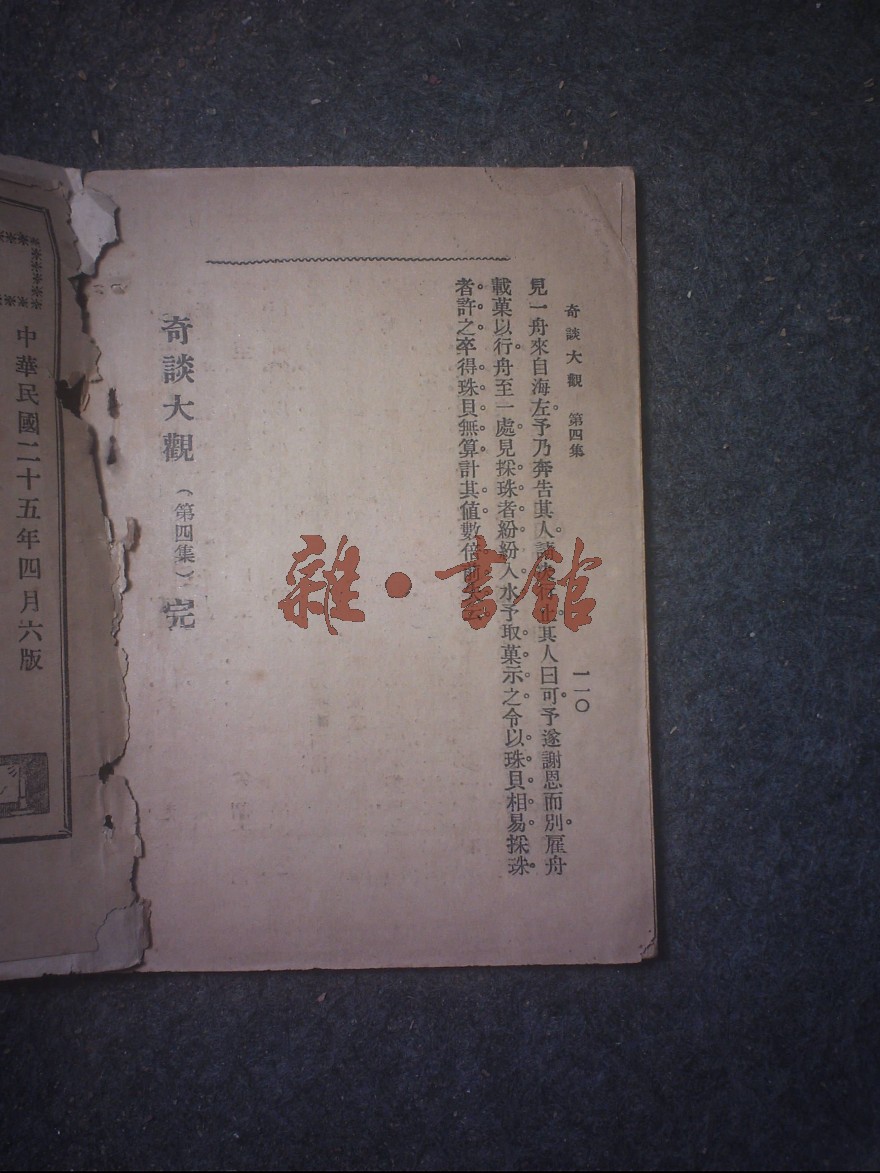 奇談大觀　第四集
一一〇
見一舟來自海左。予乃奔告其人。請其人曰可。予遂謝恩而別。雇舟
載菓以行。舟至一處。見採珠者紛紛入水。予取菓示之。令以珠貝相易。採珠
者許之。卒得珠貝無算。計其值數倍
奇談大觀（第四集）完
中華民國二十五年四月六版
雜·書館